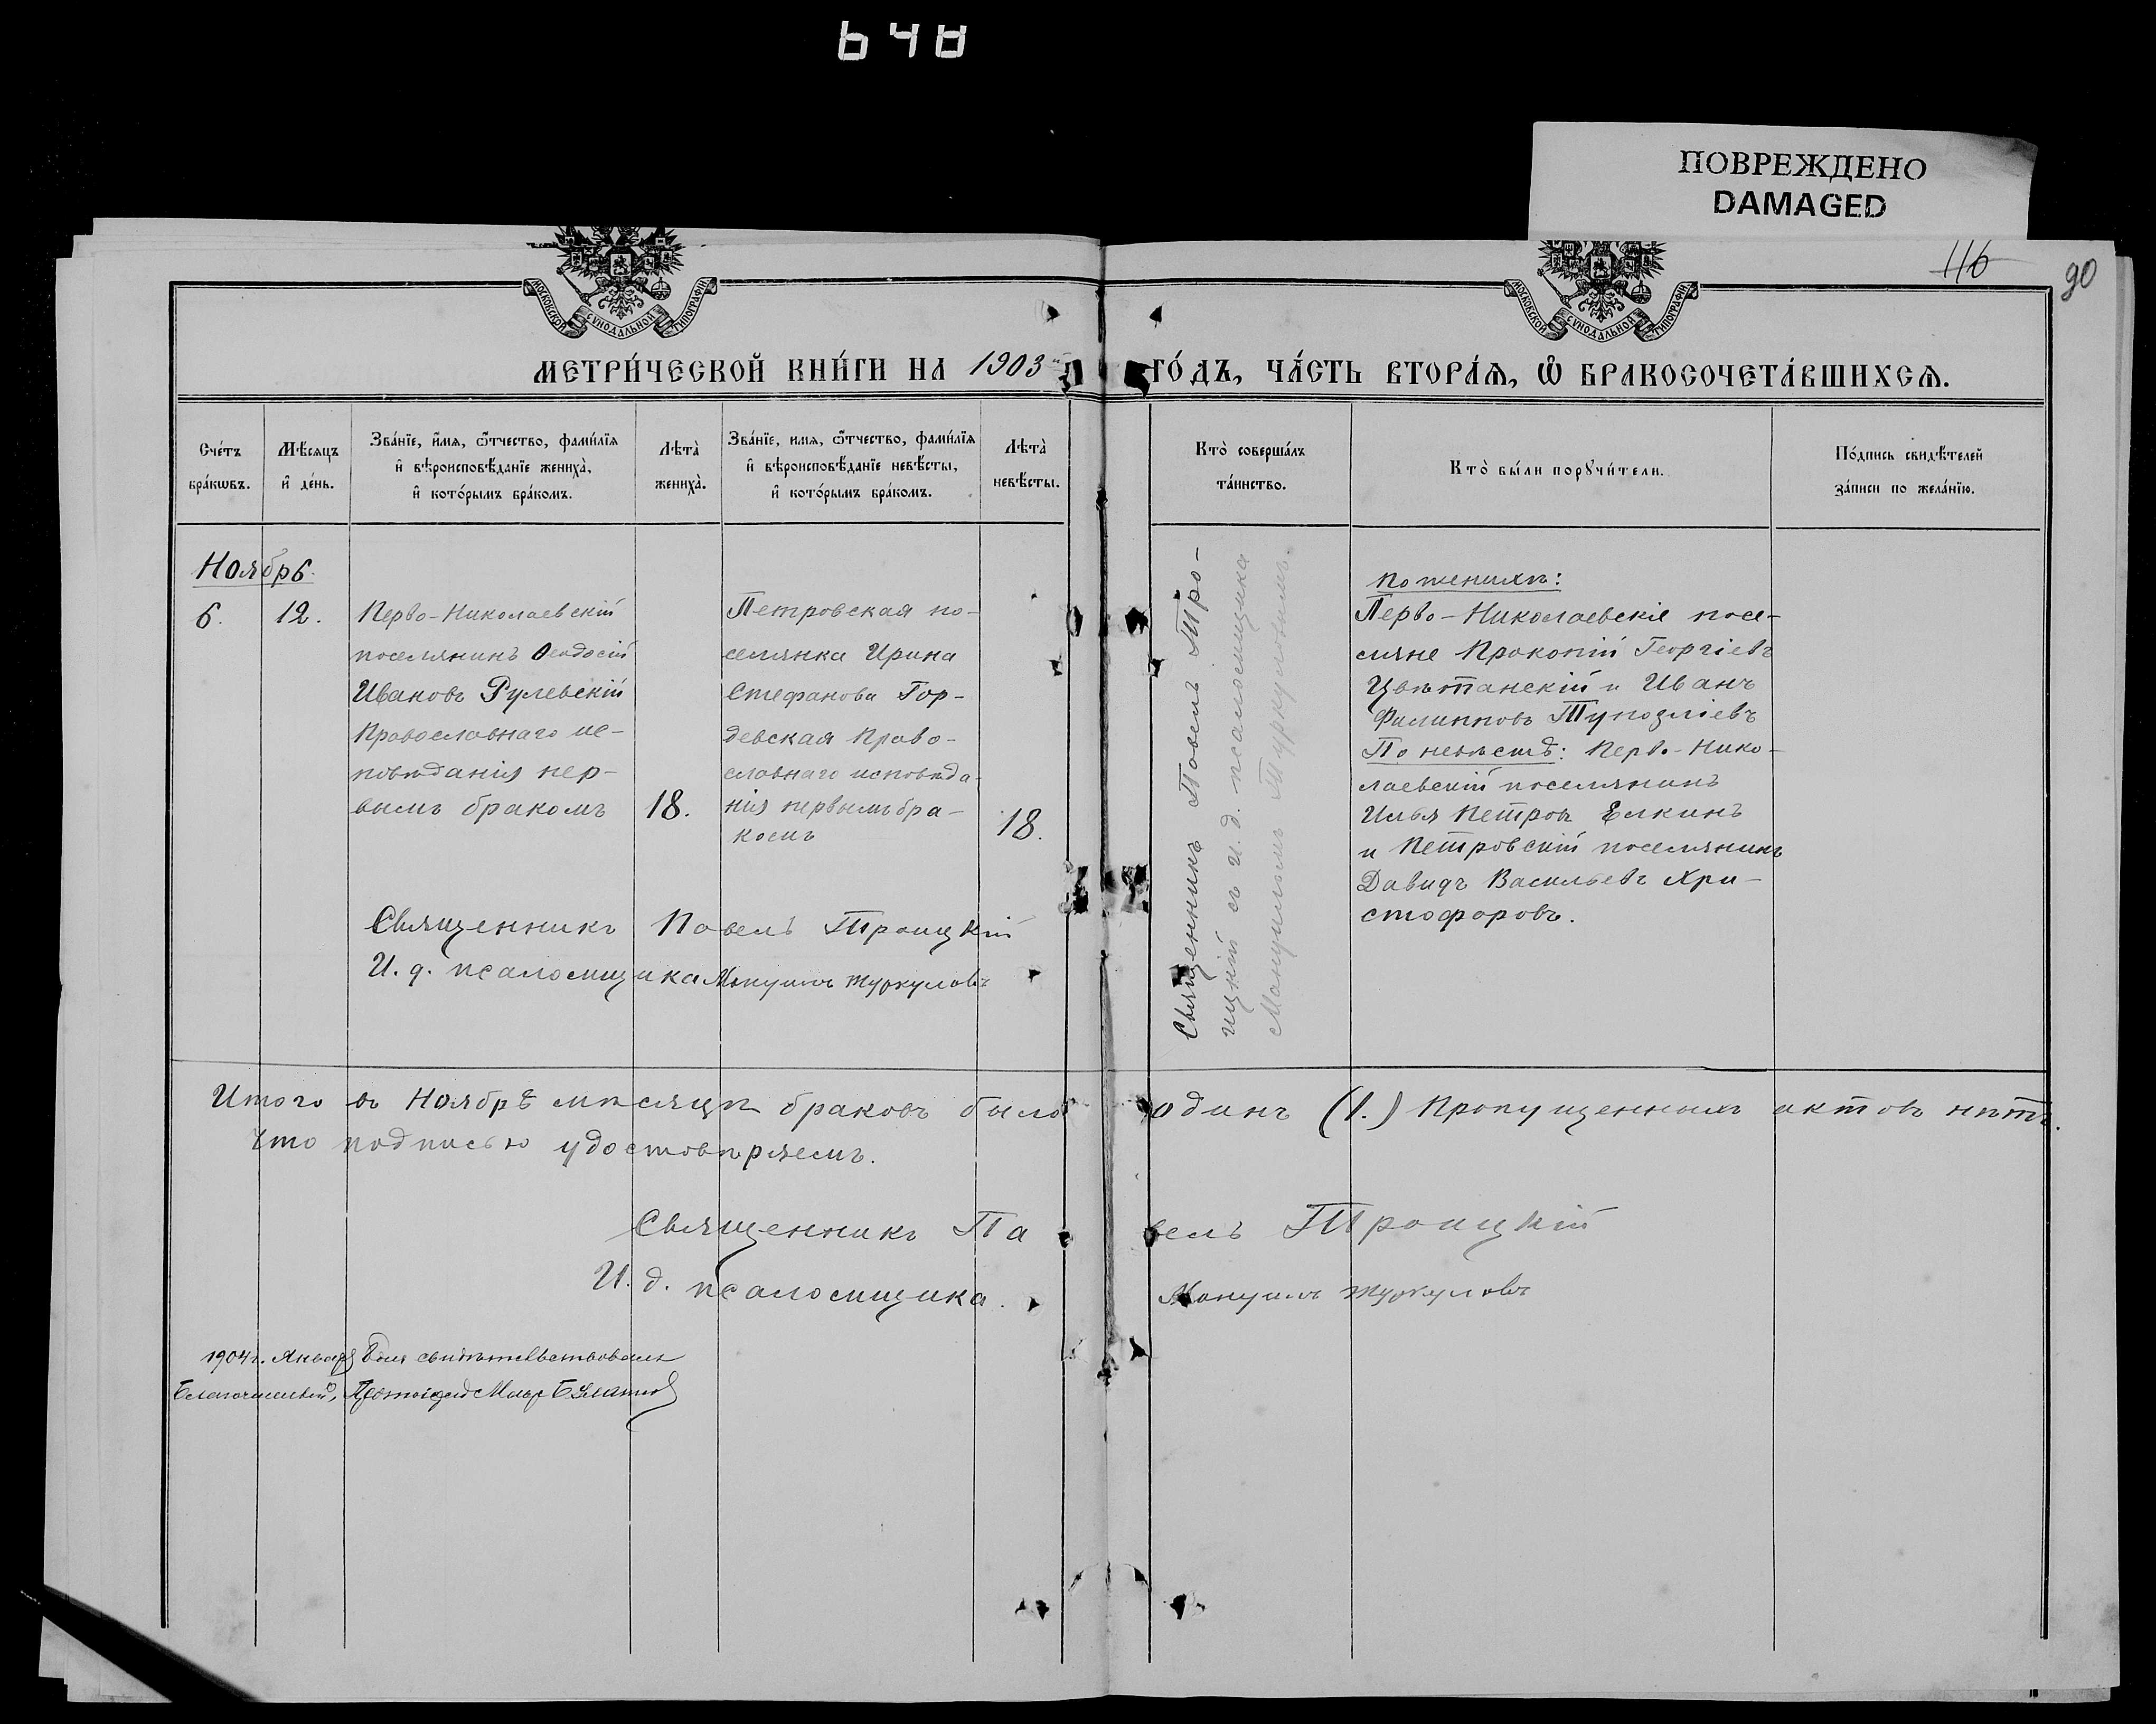 648
ПОВРЕЖДЕНО
DAMAGED
116
90
МОСКОВСКОЙ СѴНОДАЛЬНОЙ ТИПОГРАФІИ
МОСКОВСКОЙ СѴНОДАЛЬНОЙ ТИПОГРАФІИ
МЕТРИ́ЧЕСКОЙ КНИ́ГИ НА 1903 ГО́ДЪ, ЧА́СТЬ ВТОРА́Ѧ, Ѽ БРАКОСОЧЕТА́ВШИХСѦ.
Сче́тъ
бра́кωвъ.
Мѣ́сяцъ
и҆ де́нь.
Зва́нїе, и҆́мя, ѻ҆́тчество, фами́лїя
и҆ вѣроисповѣ́данїе жениха̀,
и҆ кото́рымъ бра́комъ.
Лѣта̀
жениха̀.
Зва́нїе, имя, ѻ҆́тчество, фами́лїя
и҆ вѣроисповѣ́данїе невѣ́сты,
и҆ кото́рымъ бра́комъ.
Лѣта̀
невѣ́сты.
Кто̀ соверша́лъ
та́инство.
Кто̀ бы́ли порꙋчи́тели.
По́дпись свидѣ́телей
за́писи по жела́нїю.
Ноябрь.
6.
12.
Перво-Николаевскій
поселянинъ Ѳеодосій
Ивановъ Рулевскій
Православнаго ис-
повѣданія пер-
вымъ бракомъ
18.
Петровская по-
селянка Ирина
Стефанова Гор-
девская Право-
славнаго исповѣда-
нія первымъ бра-
комъ
18.
Священникъ Павелъ Троицкій
И. д. псаломщика Мануилъ Туркуловъ
Священникъ Павелъ Тро-
ицкій съ и. д. псаломщика
Мануиломъ Туркуловымъ.
По женихѣ:
Перво-Николаевскіе посе-
ляне Прокопій Георгіевъ
Цвѣтанскій и Иванъ
Филипповъ
По невѣстѣ: Перво-Нико-
лаевскій поселянинъ
Илья Петровъ Елкинъ
и Петровскій поселянинъ
Давидъ Васильевъ Хри-
стофоровъ.
Итого въ Ноябрѣ мѣсяцѣ браковъ было одинъ (1.) Пропущенныхъ актовъ нѣтъ.
Что подписью удостовѣряемъ.
Священникъ Павелъ Троицкій
И. д. псаломщика. Мануилъ Туркуловъ
1904 г. Января свидѣтельствовалъ
Благочинный, Протоіерей